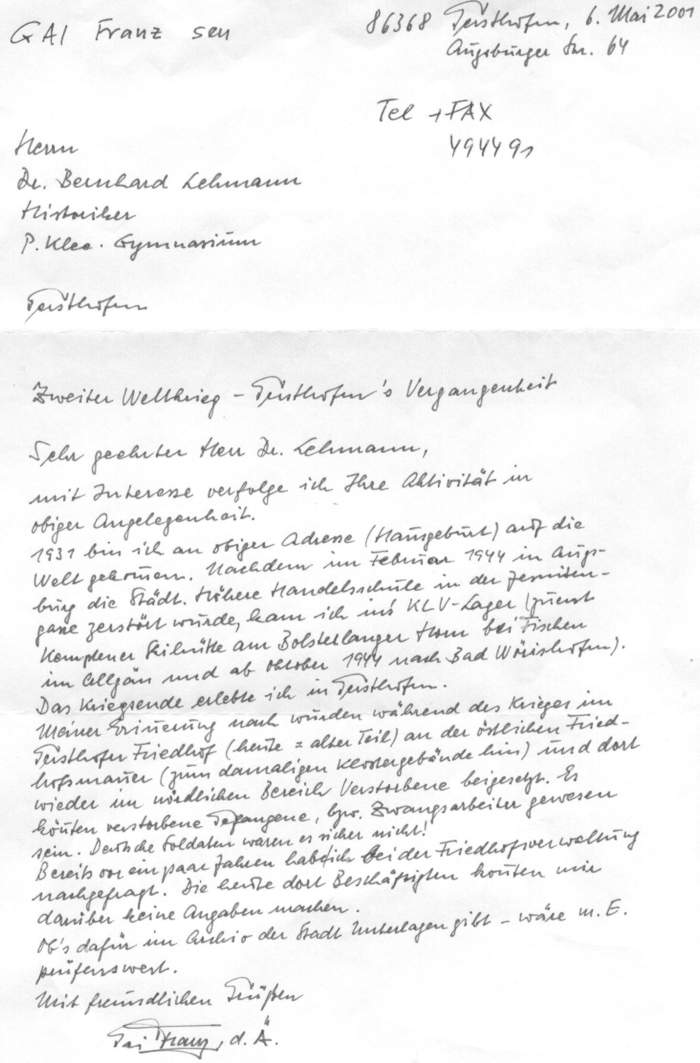 GAI Franz sen
86368 Gersthofen, 6. Mai 2001
Augsburger Str. 64
Tel + FAX
494491
Herrn
Dr. Bernhard Lehmann
Historiker
P. Klee. Gymnasium
Gersthofen
Zweiter Weltkrieg – Gersthofen's Vergangenheit
Sehr geehrter Herr Dr. Lehmann,
mit Interesse verfolge ich Ihre Aktivität in
obiger Angelegenheit.
1931 bin ich an obiger Adresse (Hausgeburt) auf die
Welt gekommen. Nachdem im Februar 1944 in Augs-
burg die Städt. Höhere Handelsschule in der Jesuiten-
gasse zerstört wurde, kam ich ins KLV-Lager (zuerst
Kemptener Skihütte am Bolsterlanger Horn bei Fischen
im Allgäu und ab Oktober 1944 nach Bad Wörishofen).
Das Kriegsende erlebte ich in Gersthofen.
Meiner Erinnerung nach wurden während des Krieges im
Gersthofer Friedhof (heute = alter Teil) an der östlichen Fried-
hofsmauer (zum damaligen Klostergebäude hin) und dort
wieder im nördlichen Bereich Verstorbene beigesetzt. Es
könnten verstorbene Gefangene, bzw. Zwangsarbeiter gewesen
sein. Deutsche Soldaten waren es sicher nicht!
Bereits vor ein paar Jahren habe ich bei der Friedhofsverwaltung
nachgefragt. Die heute dort Beschäftigten konnten mir
darüber keine Angaben machen.
Ob's dafür im Archiv der Stadt Unterlagen gibt – wäre m. E.
prüfenswert.
Mit freundlichen Grüßen
Gai Franz, d. Ä.